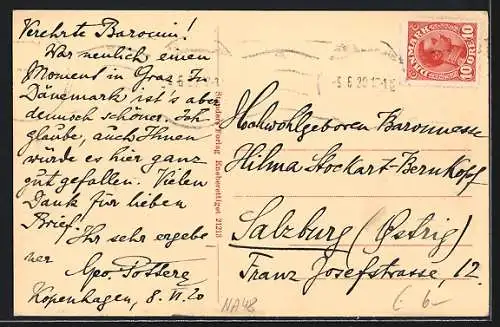 Verehrte Baronin!
War neulich einen
Moment in Graz. In
Dänemark ist's aber
dennoch schöner. Ich
glaube, auch Ihnen
würde es hier ganz
gut gefallen. Vielen
Dank für lieben
Brief.
Ihr sehr ergebe
ner
Kopenhagen, 8. VI. 20
Stenders Forlag Eneberettiget 21213
DANMARK
10 ØRE 10
Hochwohlgeboren Baronnesse
Hilma Stockart-Bernkopf
Salzburg (Østrig)
Franz Josefstrasse, 12.
NA48
6-